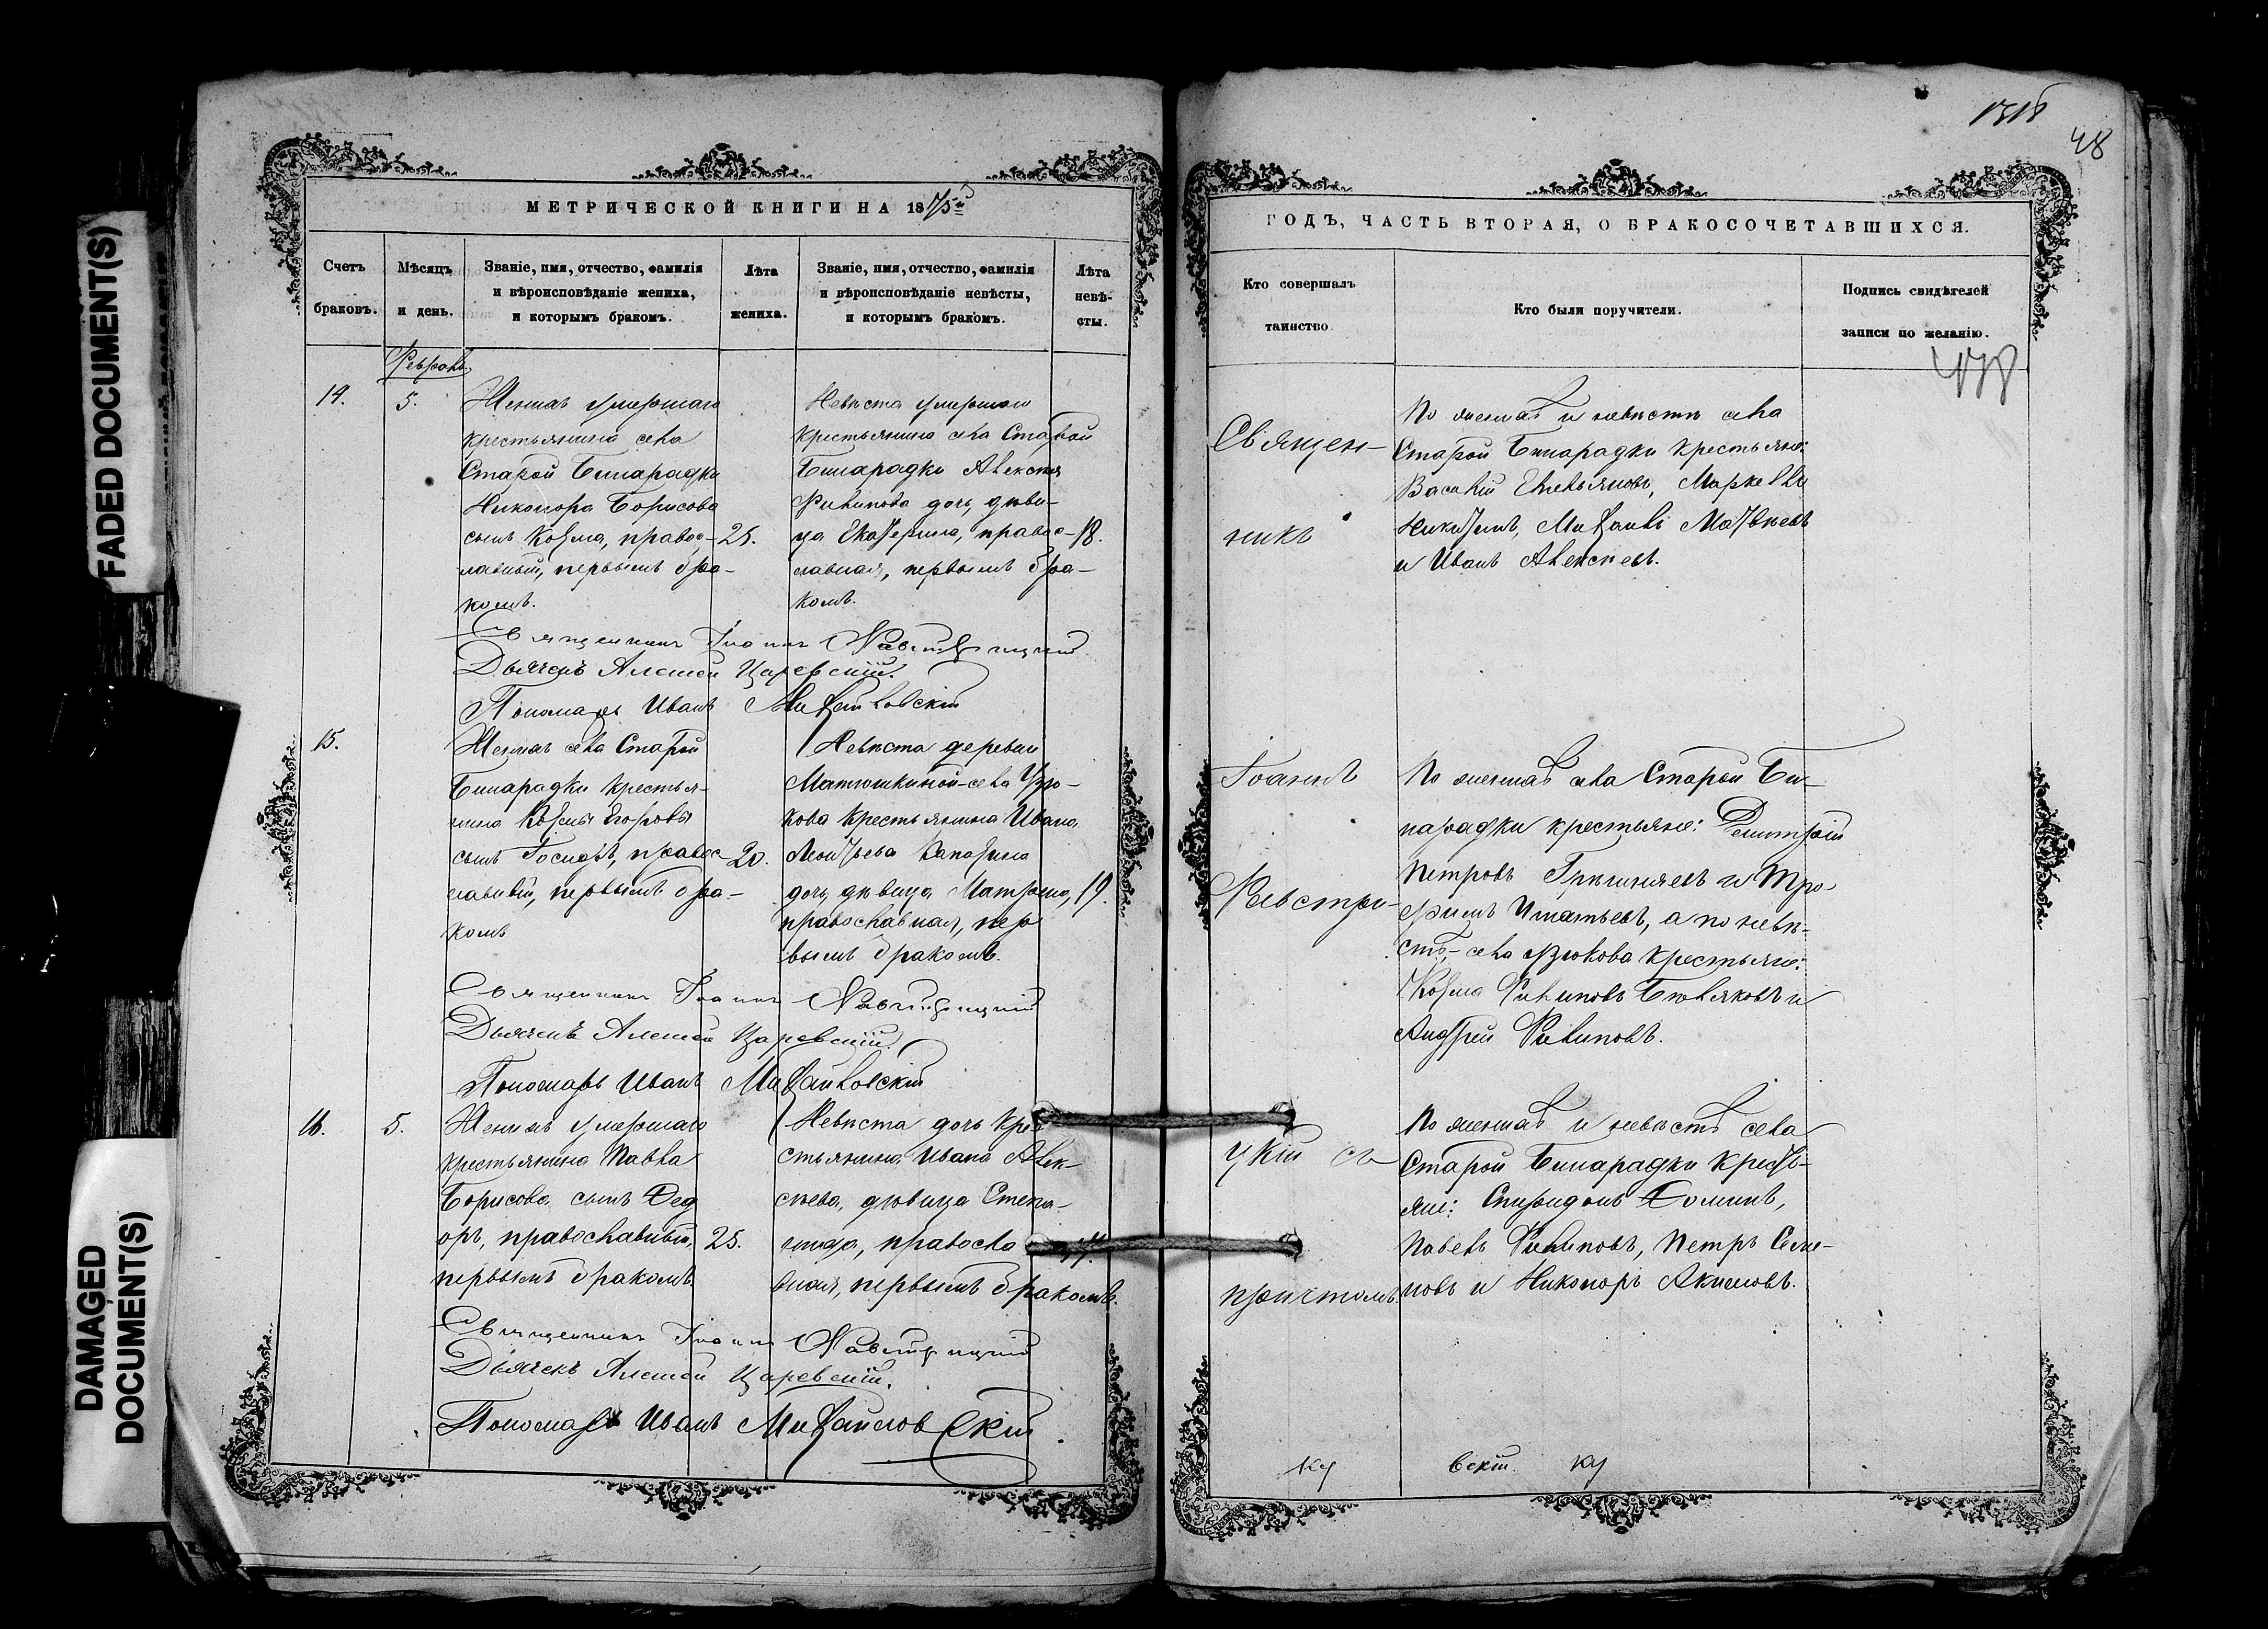 FADED DOCUMENT(S)
DAMAGED
DOCUMENT(S)
МЕТРИЧЕСКОЙ КНИГИ НА 1875й
Счетъ
браковъ.
Мѣсяцъ
и день.
Званіе, имя, отчество, фамилія
и вѣроисповѣданіе жениха,
и которымъ бракомъ.
Лѣта
жениха.
Званіе, имя, отчество, фамилія
и вѣроисповѣданіе невѣсты,
и которымъ бракомъ.
Лѣта
невѣ-
сты.
14.
5.
Женихъ умершаго
крестьянина села
Старой Бинарадки
Никонора Борисова
сынъ Козма, правос-
лавный, первымъ бра-
комъ.
25.
Невѣста умершаго
крестьянина села Старой
Бинарадки Алексѣя
Филипова дочь, дѣви-
ца Екатерина, правос-
лавная, первымъ бра-
комъ.
18.
Священникъ Іоаннъ
Дьячекъ Алексей Царевскій.
Пономарь Иванъ Михайловскій
15.
Женихъ села Старой
Бинарадки крестья-
нина Козмы Егорова
сынъ Іосифъ, правос-
лавный, первымъ бра-
комъ
20.
Невѣста деревни
Матюшкиной-села Узю-
кова крестьянина Ивана
Леонтьева
дочь, дѣвица Матрона,
православная, пер
вымъ бракомъ.
19.
Священникъ Іоаннъ
Дьячекъ Алексей Царевскій.
Пономарь Иванъ Михайловскій
16.
5.
Женихъ умершаго
крестьянина Павла
Борисова сынъ Ѳед
оръ, православный,
первымъ бракомъ
25.
Невѣста дочь кре
стьянина Ивана Алек-
сѣева, дѣвица Степа-
нида, правосла
вная, первымъ бракомъ.
Священникъ Іоаннъ
Дьячекъ Алексей Царевскій.
Пономарь Иванъ Михайловскій
48
ГОДЪ, ЧАСТЬ ВТОРАЯ, О БРАКОСОЧЕТАВШИХСЯ.
Кто совершалъ
таинство.
Кто были поручители.
Подпись свидѣтелей
записи по желанію.
Священ-
никъ
Іоаннъ
цкій съ
причтомъ.
По женихѣ и невѣстѣ села
Старой Бинарадки крестьяне:
Василій Емельяновъ,
Никитинъ, Михаилъ Матвѣевъ
и Иванъ Алексѣевъ.
По женихѣ села Старой Би-
нарадки крестьяне: Димитрій
Петровъ и Тро-
фимъ Игнатьевъ, а по невѣ-
стѣ-села Узюкова крестьяне:
Козма Филиповъ и
Андрей Филиповъ.
По женихѣ и невѣстѣ села
Старой Бинарадки кресть-
яне: Спиридонъ Ѳоминъ,
Павелъ Филиповъ, Петръ Семе-
новъ и Никоноръ Акимовъ.
вскій.